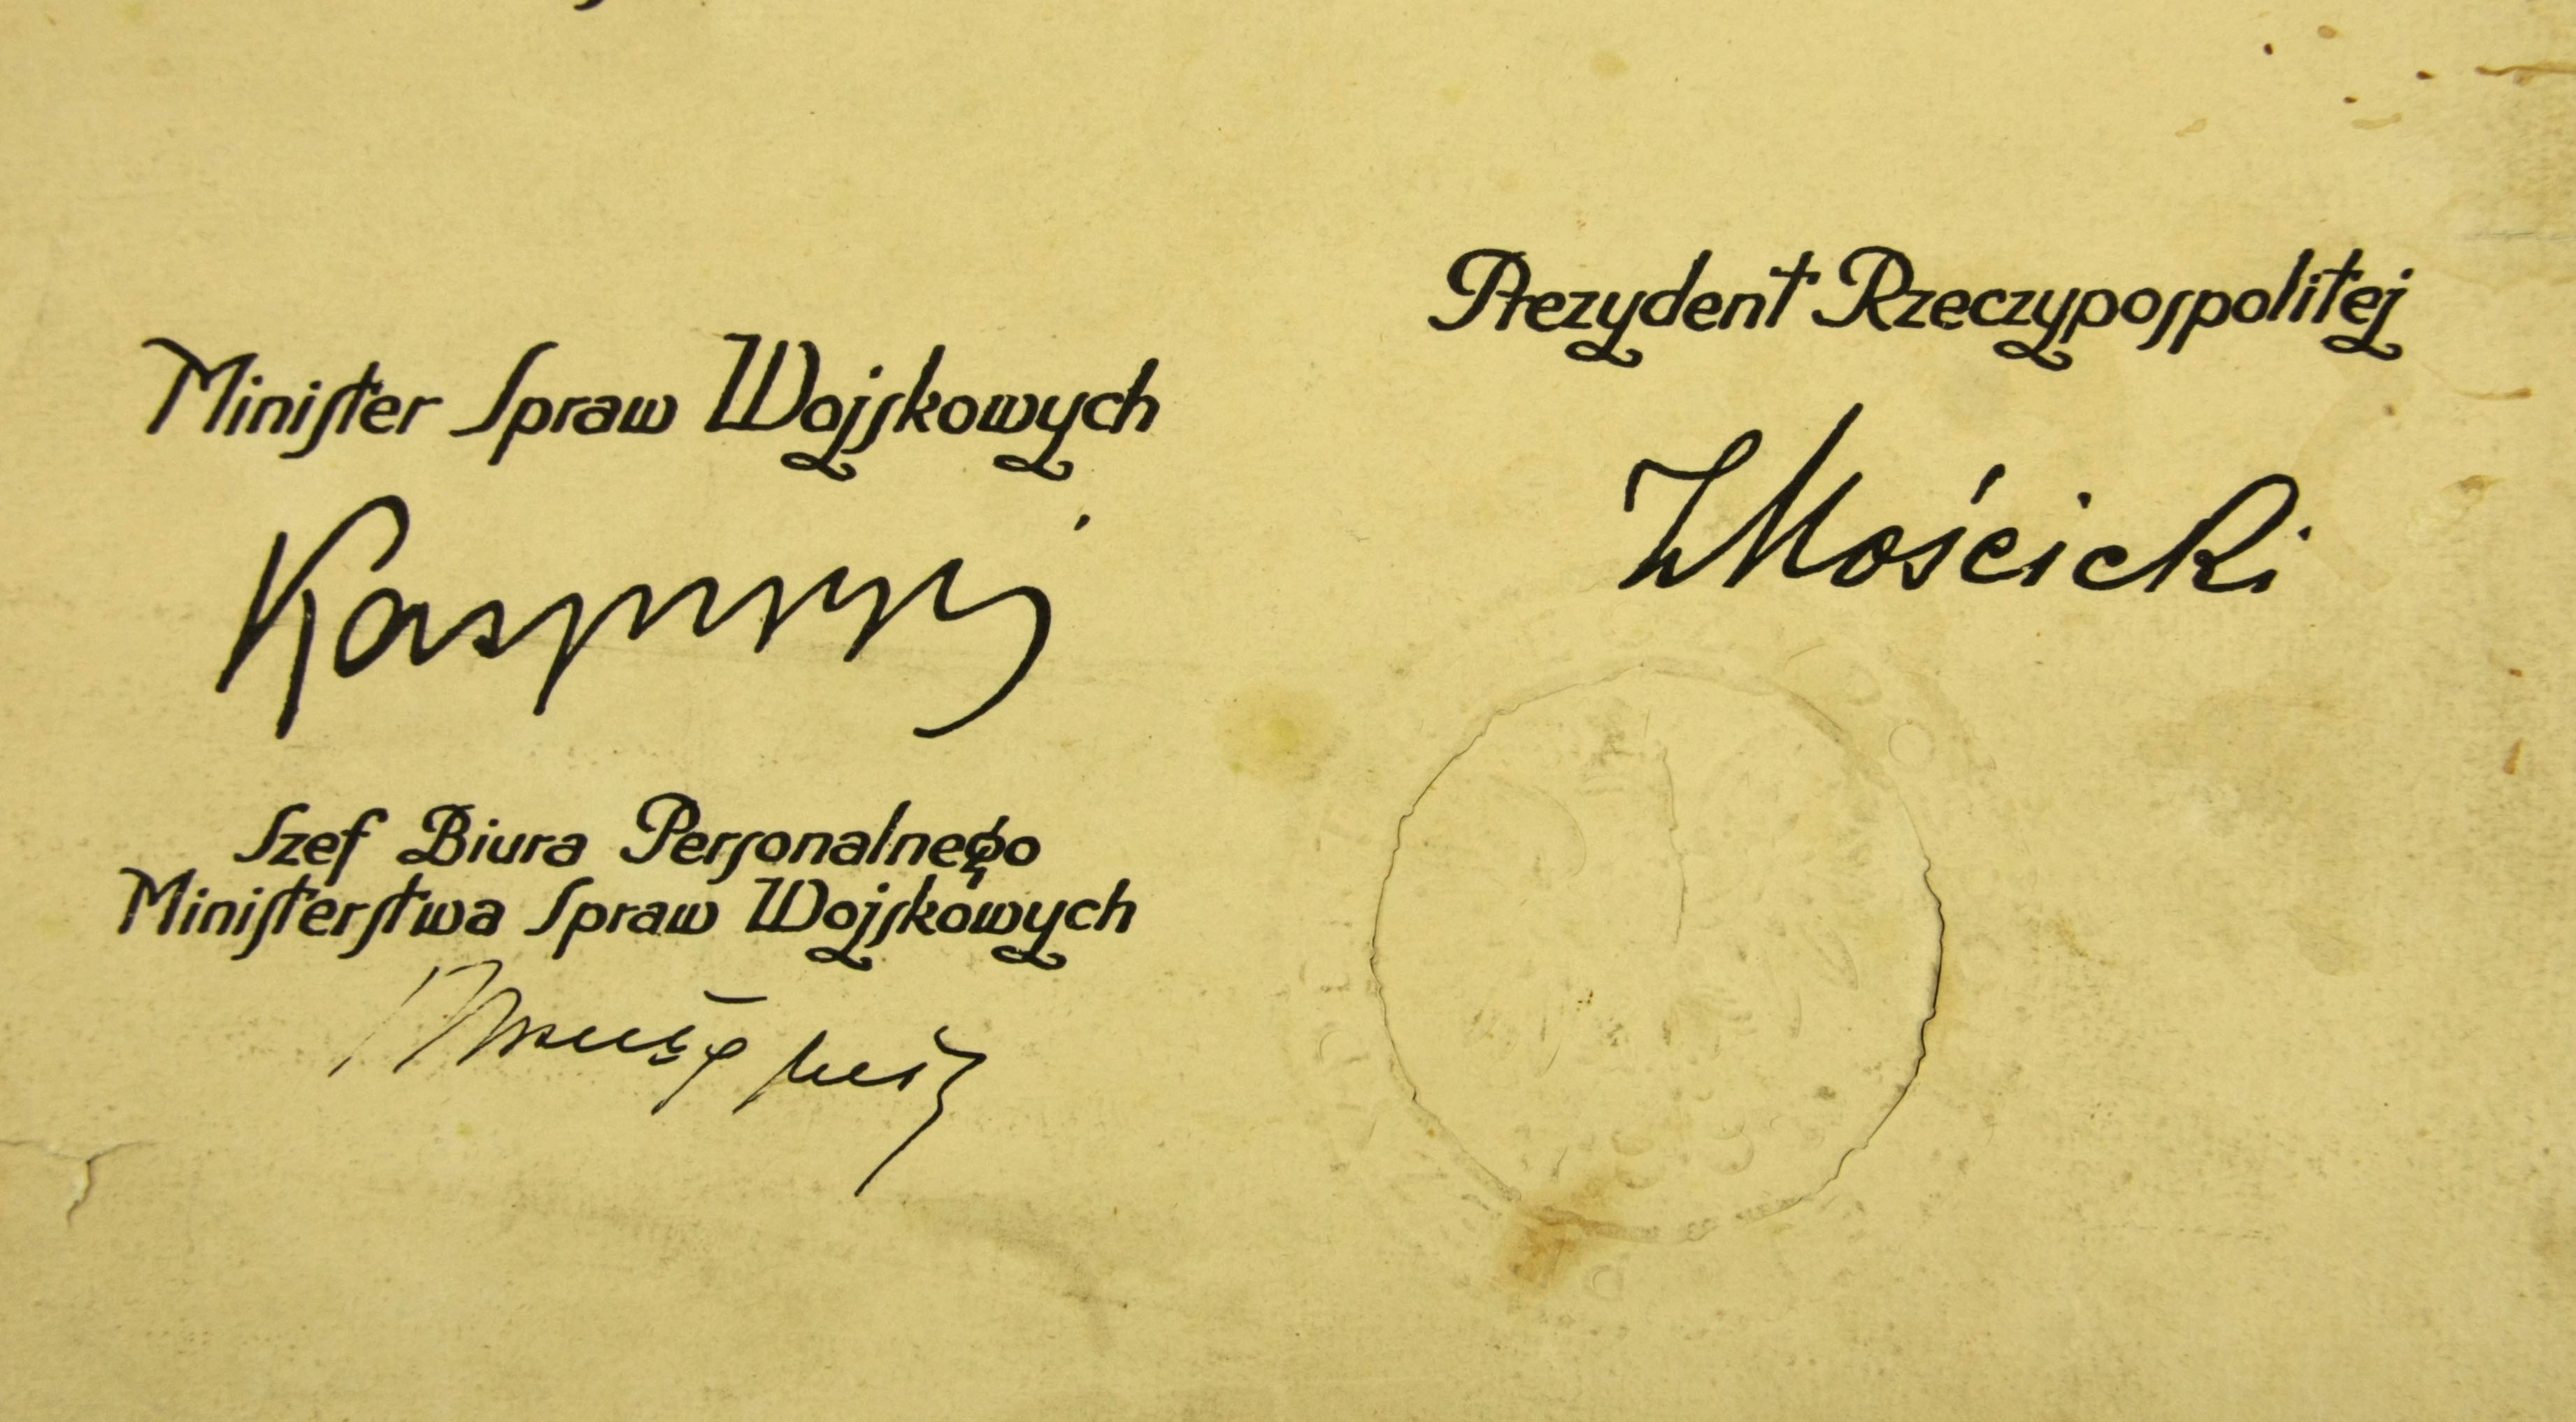 Minister Spraw Wojskowych
Kasprzycki
Szef Biura Personalnego
Ministerstwa Spraw Wojskowych
Prezydent Rzeczypospolitej
I Mościcki